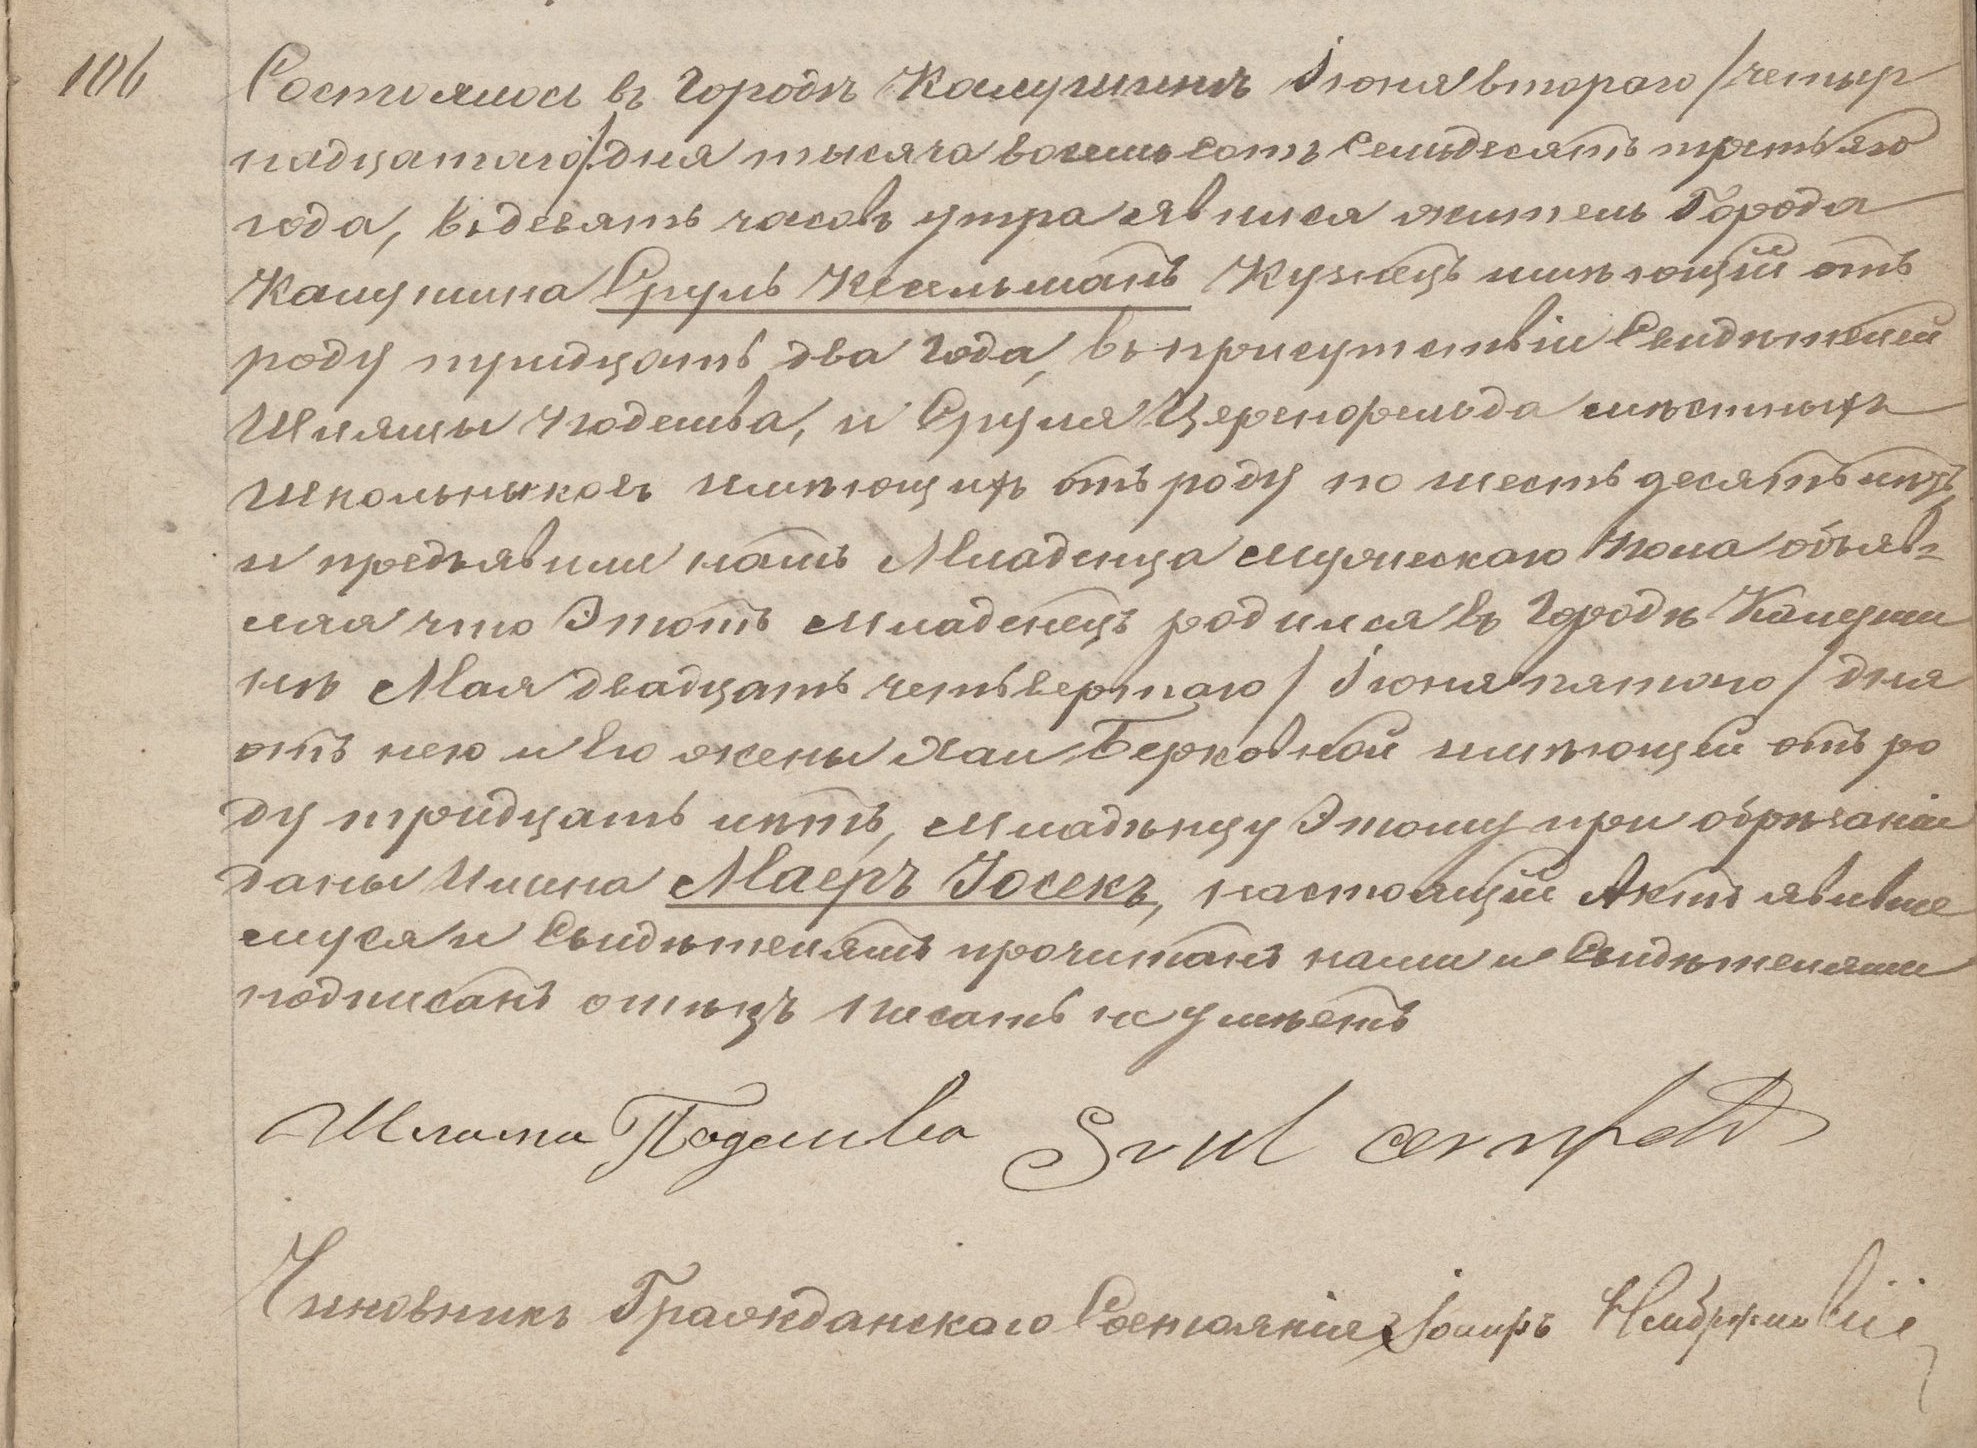 106
Состоялось въ Городѣ Калушинѣ Іюня втораго /четыр
надцатаго/ дня тысяча восемь сотъ семьдесятъ третьяго
года, въ девять часовъ утра явился житель Города
Калушина Сруль Кесельманъ Кузнецъ имѣющій отъ
роду тридцать два года, въ присутствіи Свидѣтелей
Шлямы Подешва, и Сруля Церенфельда мѣстныхъ
школьниковъ имѣющихъ отъ роду по шестьдесятъ лѣтъ,
и предъявили намъ Младенца мужескаго пола объяв-
ляя что Этотъ младенецъ родился въ Городѣ Калуши
нѣ Мая двадцать четвертаго / Іюня пятаго / дня
отъ него и Его жены Хаи Берковной имѣющей отъ ро
ду тридцать лѣтъ, младѣнцу Этому при обрѣзаніи
даны Имена Маеръ Іосекъ, настоящій Актъ явивше
муся и Свидѣтелямъ прочитанъ нами и Свидѣтелями
подписанъ отѣцъ писать не умѣетъ
Шлама Подешва Srul cernfeld
Чиновникъ Гражданскаго Состоянія